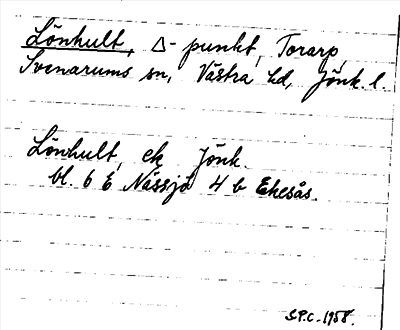 Lönhult, Δ-punkt, Torarp,
Svenarums sn, Västra hd, Jönk. l.
Lönhult, ek Jönk.
bl. 6 E Nässjö 4 b Ekesås.
S.P.C. 1958.